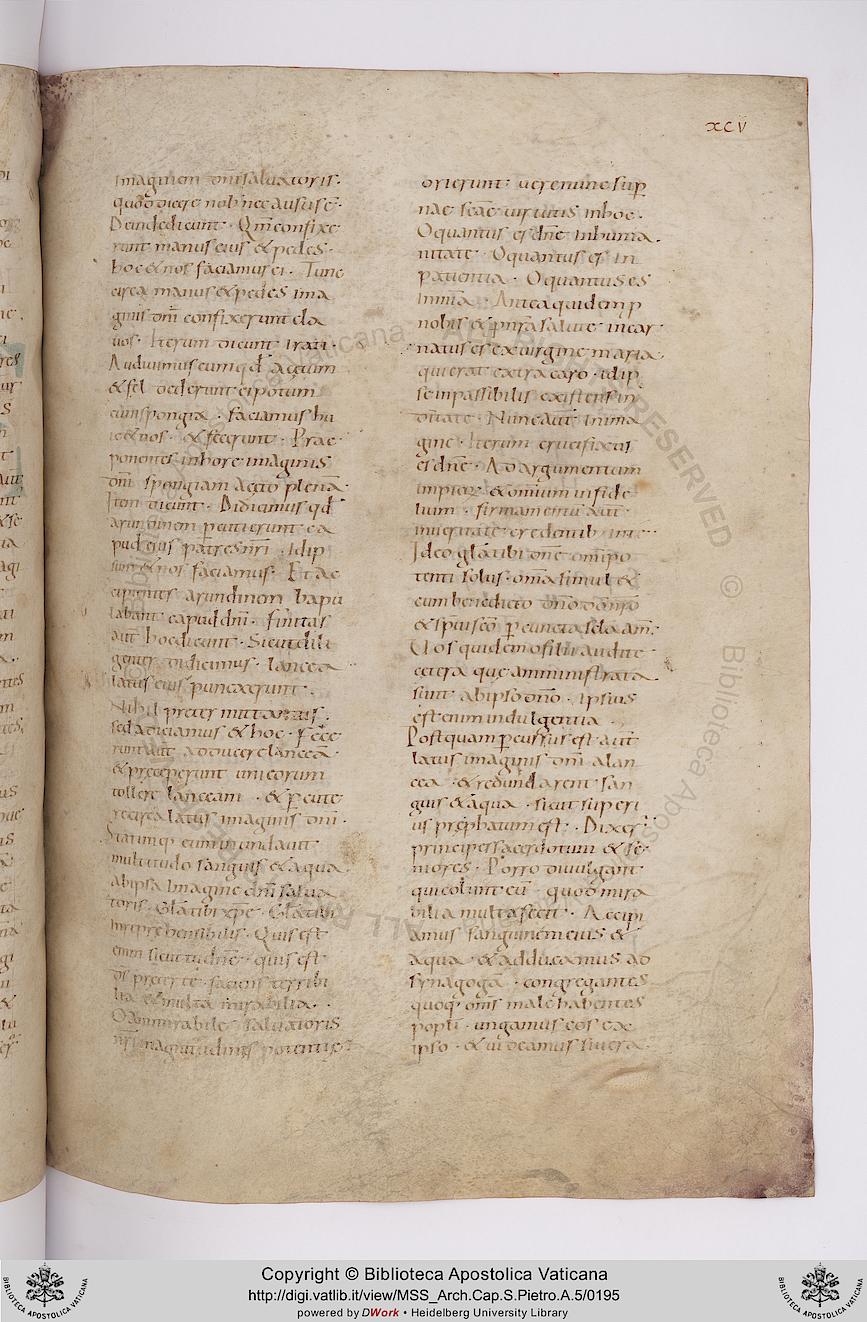 XCV
imaginem dn̄i saluatoris.
quod dicere nob nec ausus ē.
Deinde dicunt. Qm̄ confixe
runt manus eius & pedes.
hoc & nos faciamus ei. Tunc
circa manus & pedes ima
ginis dn̄i confixerunt cla
uos. Iterum dicunt irati.
Audiuimus eum qd̄ acetum
& fel dederunt ei potum
cum spongia. faciamus hu
ic & nos. & fecerunt. Prae
ponentes in hore imaginis
dn̄i spongiam aceto plenā.
Item dicunt. Didicimus qd̄
arundinem percutierunt ca
pud eius patres nr̄i. Id ip
sum & nos faciamus. Et ac
cipientes arundinem bapu
labant capud dn̄i. finitas
aut̄ hoc dicunt. Sicut dili
genter didicimus. lancea
latus eius punxerunt.
Nihil preter mittamus.
sed adiciamus & hoc. Fece
runt aut̄ adducere lanceā.
& preceperunt uni eorum
tollere lanceam. & pcute
re circa latus imaginis dn̄i.
Statimq eum inundauit
multitudo sanguis & aqua
ab ipsa imagine dn̄i salua
toris. Glā tibi xp̄e. Glā tibi
Inreprehensibilis. Quis est
enim sicut tu dn̄e. quis est
ds̄ preter te. faciens terribi
lia & multa mirabilia.
O ammirabile saluatoris
nr̄i magnitudinis potentie
orierunt. uere nunc sup
nae scāe uirtutis in hoc.
O quantus es dn̄e in huma.
nitate. O quantus es in
patientia. O quantus es
in mīa. Antea quidem p
nobis & p nr̄a salute incar
natus es ex uirgine maria.
qui erat extra caro. id ip
se inpassibilis existens in
diuitate. Nunc aut̄ in ima
gine. Iterum crucifixus
es dn̄e. Ad argumentum
impiorū & omnium infide
lium. firmamentū aut̄
in ueritate credentib in te
Ideo glā tibi dn̄e om̄ipo
tenti solus. om̄a simul &
cum benedicto
& sp̄u sc̄o p cuncta sc̄la am̄.
Uos quidem o filii audite
cetera que amministrata
sunt ab ipso dn̄o. Ipsius
est enim indulgentia.
Postquam pcussus est aut̄
latus imaginis dn̄i a lan
cea. & redundarent san
guis & aqua. sicut superi
us prephatum est. Dixer
principes sacerdotum & se
niores. Porro diuulgant
qui colunt eū. quod mira
bilia multa fecit. Accipi
amus sanguinem eius &
aqua. & adducamus ad
synagogā. congregantes
quoq omīs male habentes
popli. ungamus eos ex
ipso. & uideamus si uera.
Copyright © Biblioteca Apostolica Vaticana
http://digi.vatlib.it/view/MSS_Arch.Cap.S.Pietro.A.5/0195
powered by DWork • Heidelberg University Library